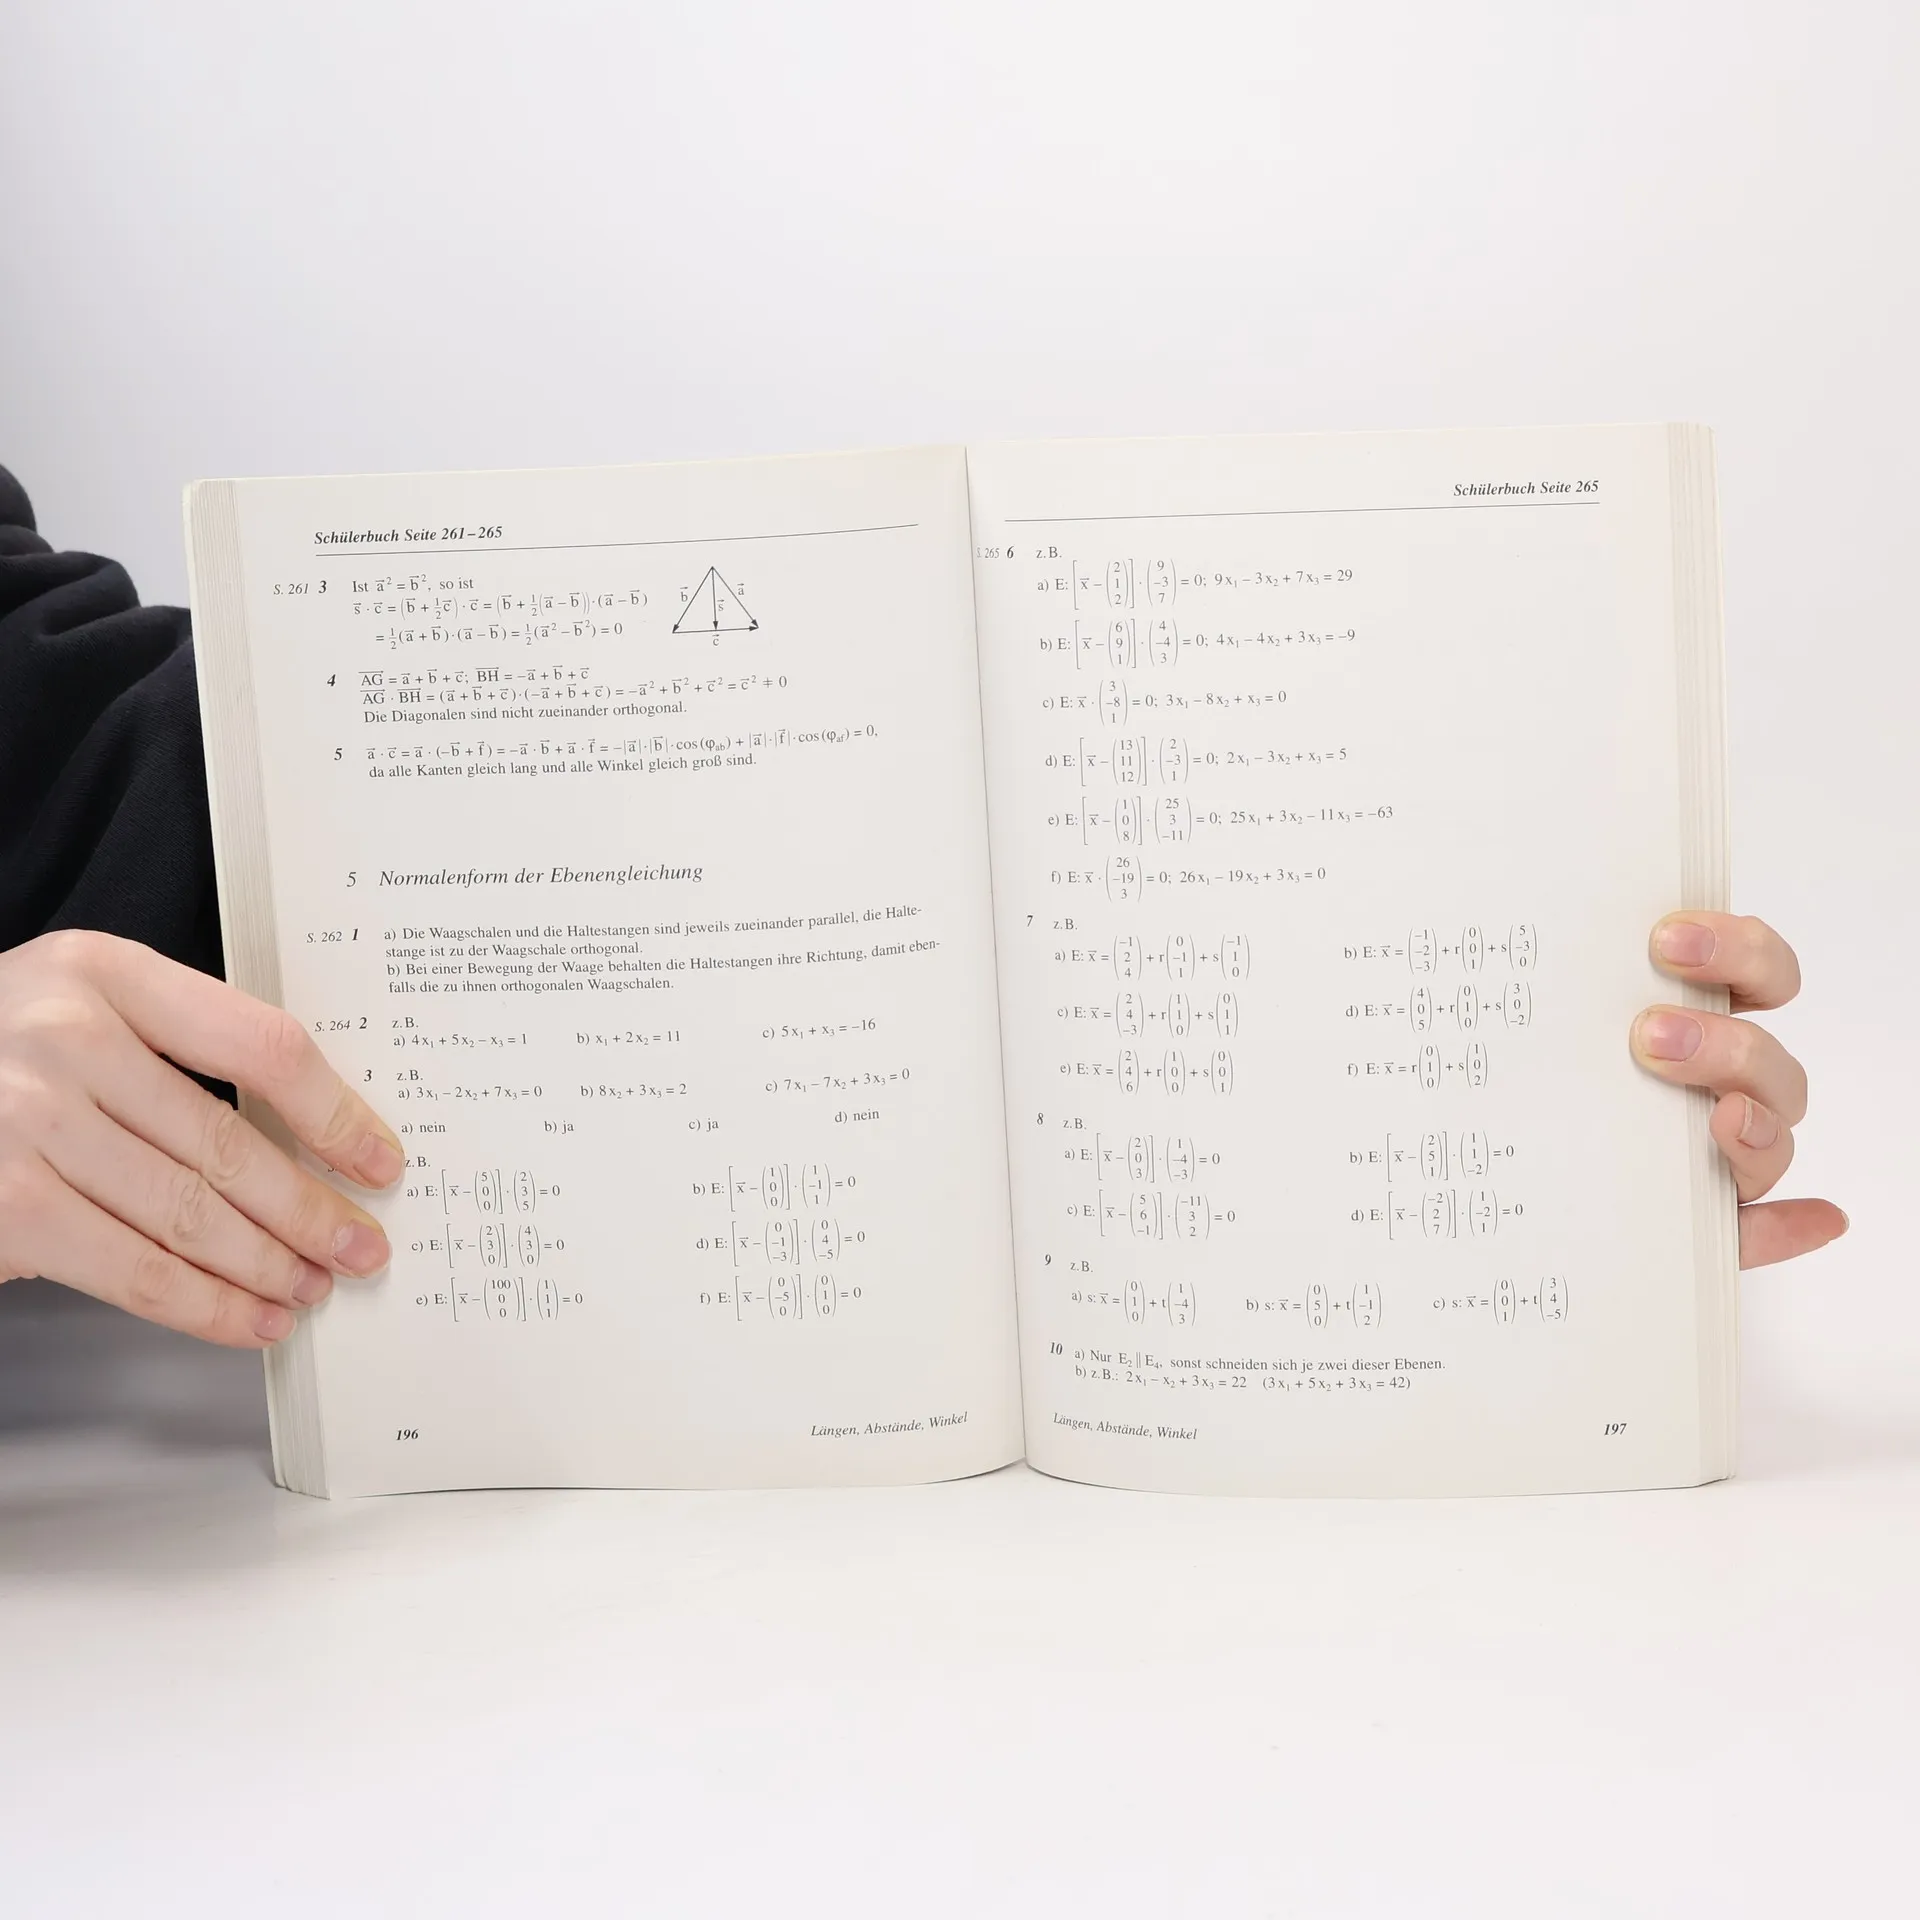 Schülerbuch Seite 261–265
S. 261 3 Ist a⃗² = b⃗², so ist
s⃗ · c⃗ = (b⃗ + ½c⃗) · c⃗ = (b⃗ + ½(a⃗ − b⃗)) · (a⃗ − b⃗)
= ½(a⃗ + b⃗) · (a⃗ − b⃗) = ½(a⃗² − b⃗²) = 0
b⃗ a⃗
s⃗
c⃗
4 AG = a⃗ + b⃗ + c⃗; BH = −a⃗ + b⃗ + c⃗
AG · BH = (a⃗ + b⃗ + c⃗) · (−a⃗ + b⃗ + c⃗) = −a⃗² + b⃗² + c⃗² = c⃗² ≠ 0
Die Diagonalen sind nicht zueinander orthogonal.
5 a⃗ · c⃗ = a⃗ · (−b⃗ + f⃗) = −a⃗ · b⃗ + a⃗ · f⃗ = −|a⃗| · |b⃗| · cos(φab) + |a⃗| · |f⃗| · cos(φaf) = 0,
da alle Kanten gleich lang und alle Winkel gleich groß sind.
5 Normalenform der Ebenengleichung
S. 262 1 a) Die Waagschalen und die Haltestangen sind jeweils zueinander parallel, die Halte-
stange ist zu der Waagschale orthogonal.
b) Bei einer Bewegung der Waage behalten die Haltestangen ihre Richtung, damit eben-
falls die zu ihnen orthogonalen Waagschalen.
S. 264 2 z.B.
a) 4x₁ + 5x₂ − x₃ = 1 b) x₁ + 2x₂ = 11 c) 5x₁ + x₃ = −16
3 z.B.
a) 3x₁ − 2x₂ + 7x₃ = 0 b) 8x₂ + 3x₃ = 2 c) 7x₁ − 7x₂ + 3x₃ = 0
a) nein b) ja c) ja d) nein
z.B.
a) E: [x⃗ − (5 0 0)] · (2 3 5) = 0 b) E: [x⃗ − (1 0 0)] · (1 −1 1) = 0
c) E: [x⃗ − (2 3 0)] · (4 3 0) = 0 d) E: [x⃗ − (0 −1 −3)] · (0 4 −5) = 0
e) E: [x⃗ − (100 0 0)] · (1 1 1) = 0 f) E: [x⃗ − (0 −5 0)] · (0 1 0) = 0
196 Längen, Abstände, Winkel
Schülerbuch Seite 265
S. 265 6 z.B.
a) E: [x⃗ − (2 1 2)] · (9 −3 7) = 0; 9x₁ − 3x₂ + 7x₃ = 29
b) E: [x⃗ − (6 9 1)] · (4 −4 3) = 0; 4x₁ − 4x₂ + 3x₃ = −9
c) E: x⃗ · (3 −8 1) = 0; 3x₁ − 8x₂ + x₃ = 0
d) E: [x⃗ − (13 11 12)] · (2 −3 1) = 0; 2x₁ − 3x₂ + x₃ = 5
e) E: [x⃗ − (1 0 8)] · (25 3 −11) = 0; 25x₁ + 3x₂ − 11x₃ = −63
f) E: x⃗ · (26 −19 3) = 0; 26x₁ − 19x₂ + 3x₃ = 0
7 z.B.
a) E: x⃗ = (−1 2 4) + r(0 −1 1) + s(−1 1 0) b) E: x⃗ = (−1 −2 −3) + r(0 0 1) + s(5 −3 0)
c) E: x⃗ = (2 4 −3) + r(1 1 0) + s(0 1 1) d) E: x⃗ = (4 0 5) + r(0 1 0) + s(3 0 −2)
e) E: x⃗ = (2 4 6) + r(1 0 0) + s(0 0 1) f) E: x⃗ = r(0 1 0) + s(1 0 2)
8 z.B.
a) E: [x⃗ − (2 0 3)] · (1 −4 −3) = 0 b) E: [x⃗ − (2 5 1)] · (1 1 −2) = 0
c) E: [x⃗ − (5 6 −1)] · (−11 3 2) = 0 d) E: [x⃗ − (−2 2 7)] · (1 −2 1) = 0
9 z.B.
a) s: x⃗ = (0 1 0) + t(1 −4 3) b) s: x⃗ = (0 5 0) + t(1 −1 2) c) s: x⃗ = (0 0 1) + t(3 4 −5)
10 a) Nur E₂ ∥ E₄, sonst schneiden sich je zwei dieser Ebenen.
b) z.B.: 2x₁ − x₂ + 3x₃ = 22 (3x₁ + 5x₂ + 3x₃ = 42)
Längen, Abstände, Winkel 197